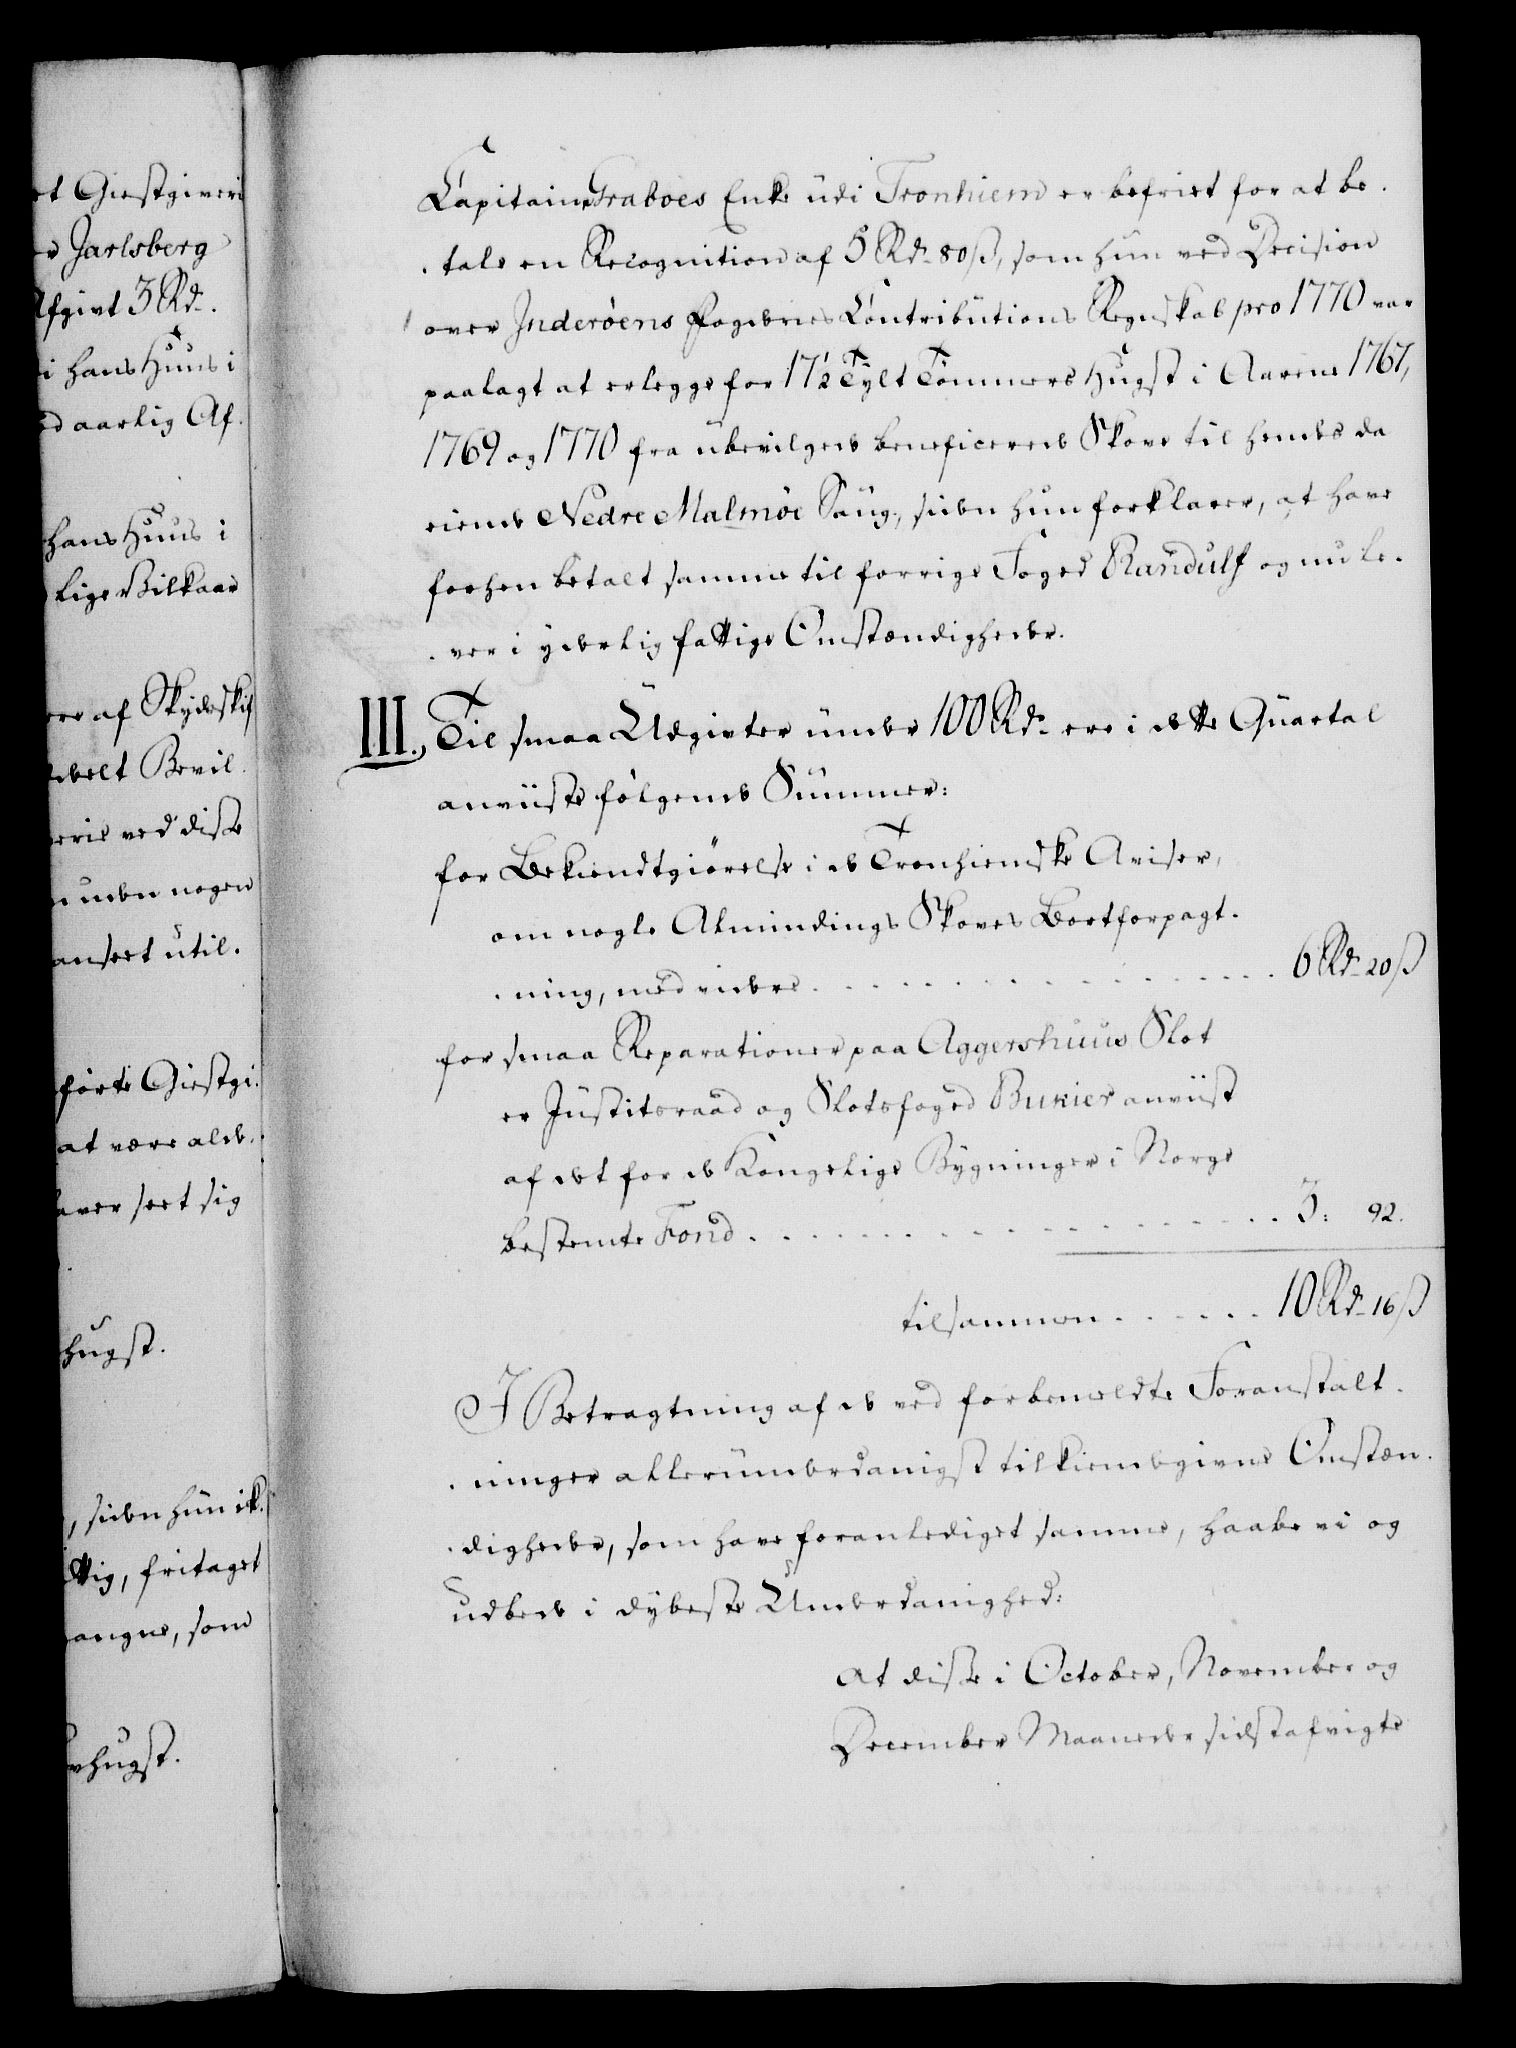 et Giestgiveri
Jarlsberg
Afgivt 3 Rd.
i hans Huus i
ed aarlig Af¬
hans Huus i
lige Vilkaar
af Skydsskif
Bevil
ved disse
uden nogen
ansøet util¬
førte Giestgi¬
at være alde¬
seet sig
hugst.
, siden hun ik¬
ttig, fritaget
som
hugst.
Capitain Graboes Enke udi Tronhiem er befriet for at be¬
tale en Recognition af 5 Rd. 80 ß, som hun ved Decision
over Inderøens Fogderies Contributions Regnskab pro 1770 var
paalagt at erlegge for 17 1/2 Tylt Tømmers Hugst i Aarene 1767,
1769 og 1770 fra ubevilgede beneficerede Skove til hendes da
eiende Nedre Malmøe Saug, siden hun forklarer, at have
forhen betalt samme til forrige Foged Randulf og nu le¬
ver i yderlig fattige Omstændigheder.
III. Til smaa Udgivter under 100 Rd. ere i dette Quartal
anviiste følgende Summer:
for Bekiendtgiørelse i de Tronhiemske Aviser,
om nogle Almindings Skoves Bortforpagt¬
ning, med videre . . . . . . . . . . . . . . 6 Rd. 20 ß
for smaa Reparationer paa Aggershuus Slot
er Justitsraad og Slotsfoged Bukier anviist
af det for de Kongelige Bygninger i Norge
bestemte Fond . . . . . . . . . . . . . . . 3: 92.
tilsammen . . . . . . 10 Rd. 16 ß
I Betragtning af de ved forbemeldte Foranstalt¬
ninger allerunderdanigst tilkiendegivne Omstæn¬
digheder, som have foranlediget samme, haabe vi og
udbede i dybeste Underdanighed:
at disse i October, November og
December Maaneder sidstafvigte